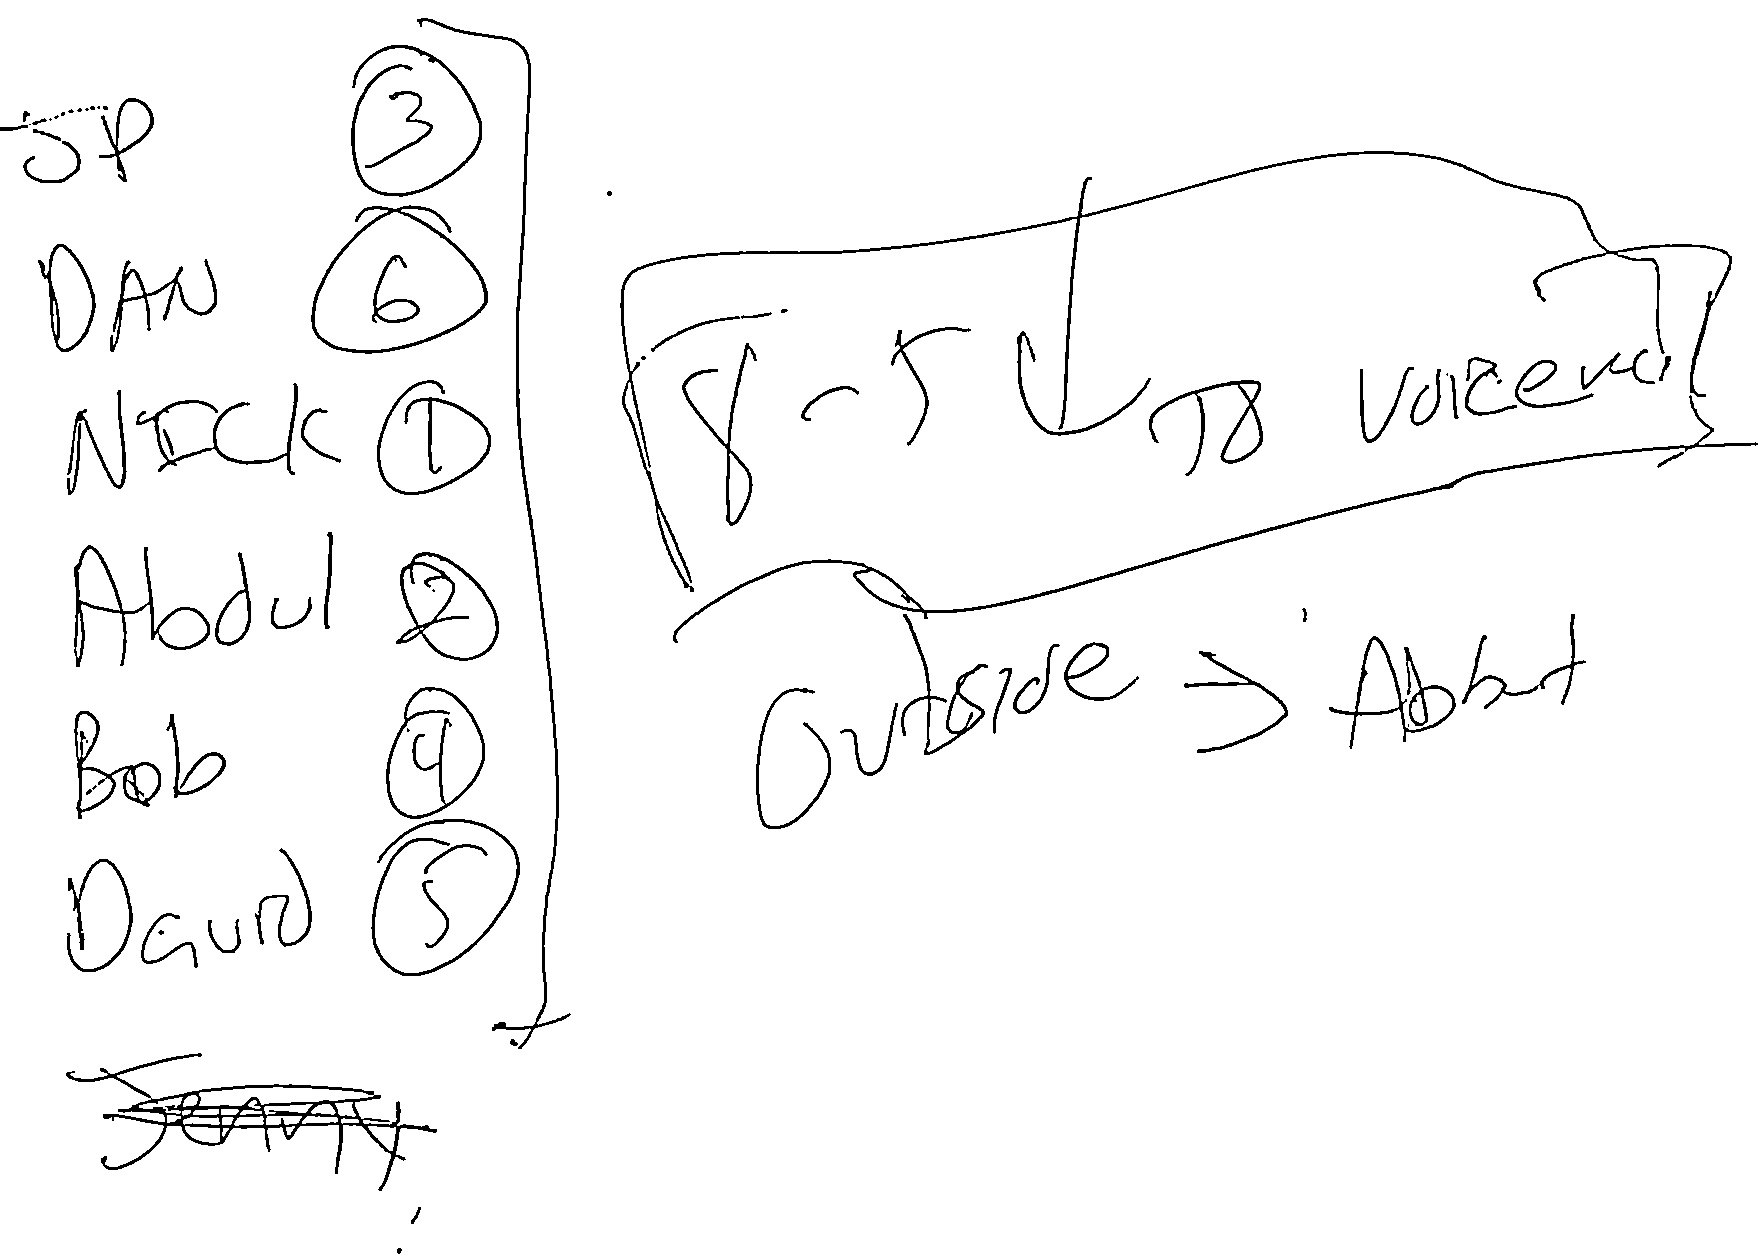 JP 3
DAN 6
NICK 1
Abdul 2
Bob 4
David 5
Jenny
8-5 To Voicemail
Outside → Abbot